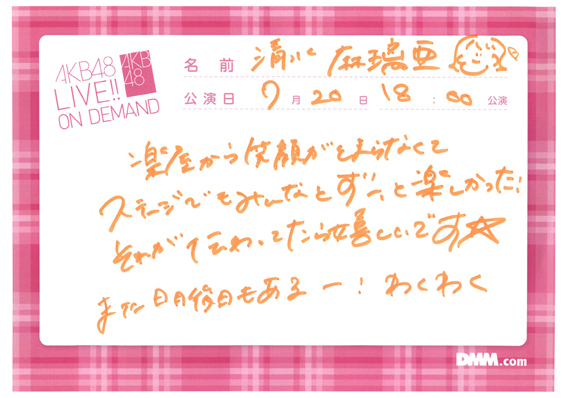 AKB48
LIVE!!
ON DEMAND
AKB
48
名前 清水 麻璃亜
公演日 7月20日 18:00 公演
楽屋から笑顔がとまらなくて
ステージでもみんなとずーっと楽しかった!
それが伝わってたら嬉しいです☆
また明後日もあるー! わくわく
DMM.com